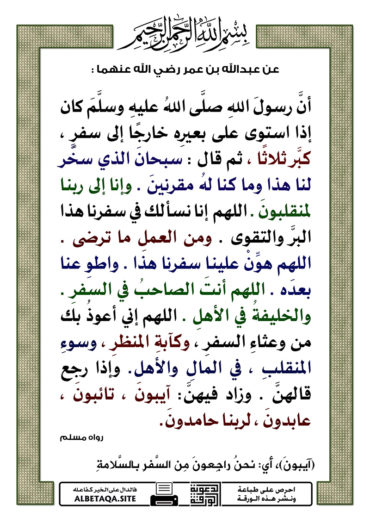 بسم الله الرحمن الرحيم
عن عبدالله بن عمر رضي الله عنهما :
أنَّ رسولَ اللهِ صلَّى اللهُ عليهِ وسلَّمَ كان
إذا استوى على بعيرِه خارجًا إلى سفرٍ ،
كبَّر ثلاثًا ، ثم قال : سبحانَ الذي سخَّر
لنا هذا وما كنا لهُ مقرنينَ . وإنا إلى ربنا
لمنقلبونَ . اللهم إنا نسألك في سفرنا هذا
البرَّ والتقوى . ومن العملِ ما ترضى .
اللهم هوِّنْ علينا سفرنا هذا . واطوِ عنا
بعدَه . اللهم أنتَ الصاحبُ في السفرِ .
والخليفةُ في الأهلِ . اللهم إني أعوذُ بك
من وعثاءِ السفرِ ، وكآبةِ المنظرِ ، وسوءِ
المنقلبِ ، في المالِ والأهلِ. وإذا رجع
قالهنَّ . وزاد فيهنَّ: آيبونَ ، تائبونَ ،
عابدونَ ، لربنا حامدونَ.
رواه مسلم
(آيبونَ)، أي: نحنُ راجعونَ مِن السَّفر بالسَّلامةِ
احرص على طباعة
ونشر هذه الورقة
الدعوية
الورقة
فالدال على الخير كفاعله
ALBETAQA.SITE